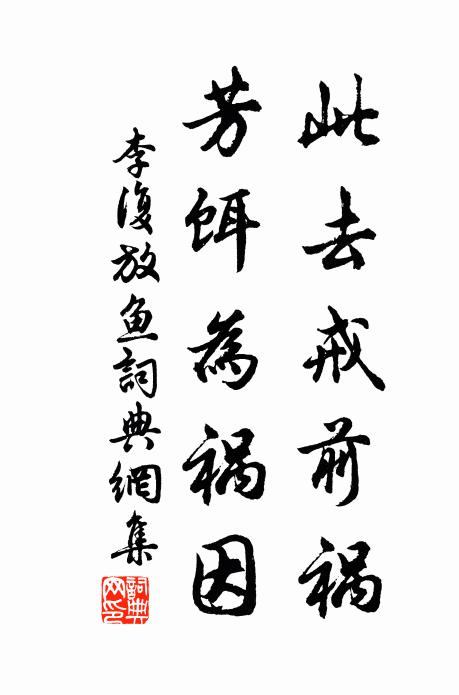 此去戒前禍
芳餌為禍因
李復放魚詞典網集
詞典網印